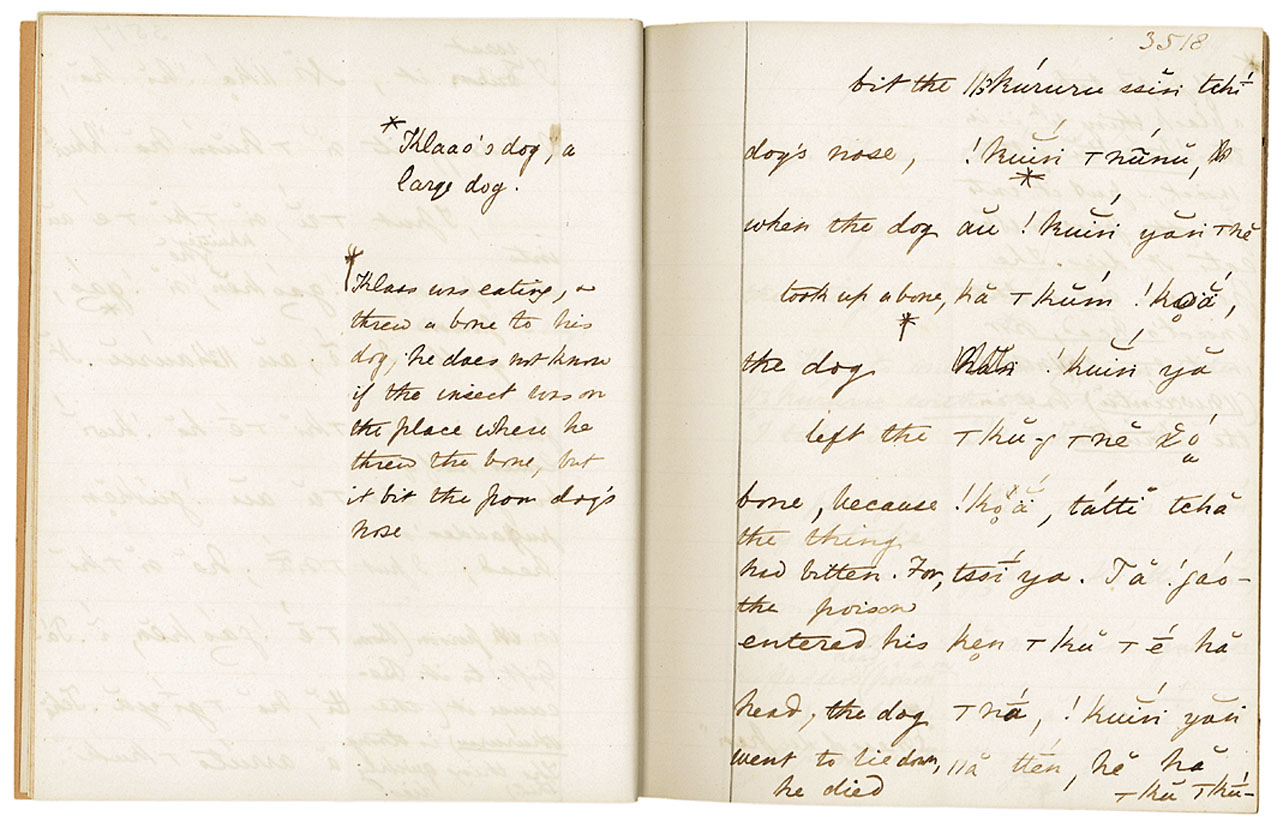 *
Klaas's dog, a
large dog.
*
Klaas was eating, &
threw a bone to his
dog, he does not know
if the insect was on
the place where he
threw the bone, but
it bit the poor dog's
nose
3518
bit the ǁkúruru ssĭsi tchí
dog's nose, !kuĭń ⊤nŭnŭ,
*
when the dog aŭ !kuĭń yăn ⊤nĕ
took up a bone, hă ⊤kŭm !kọă,
*
the dog !kuĭń yă
left the ⊤kŭ-g ⊤nĕ
bone, because !kọă, táttĭ tchă
the thing
had bitten. For, tssí ya. Tă !gáo-
the poison
entered his kẹn ⊤kŭ ⊤é hă
head, the dog ⊤ná, !kuĭń yăn
went to lie down, ǁă ttĕn, hĕ hă
he died ⊤kŭ ⊤kú-